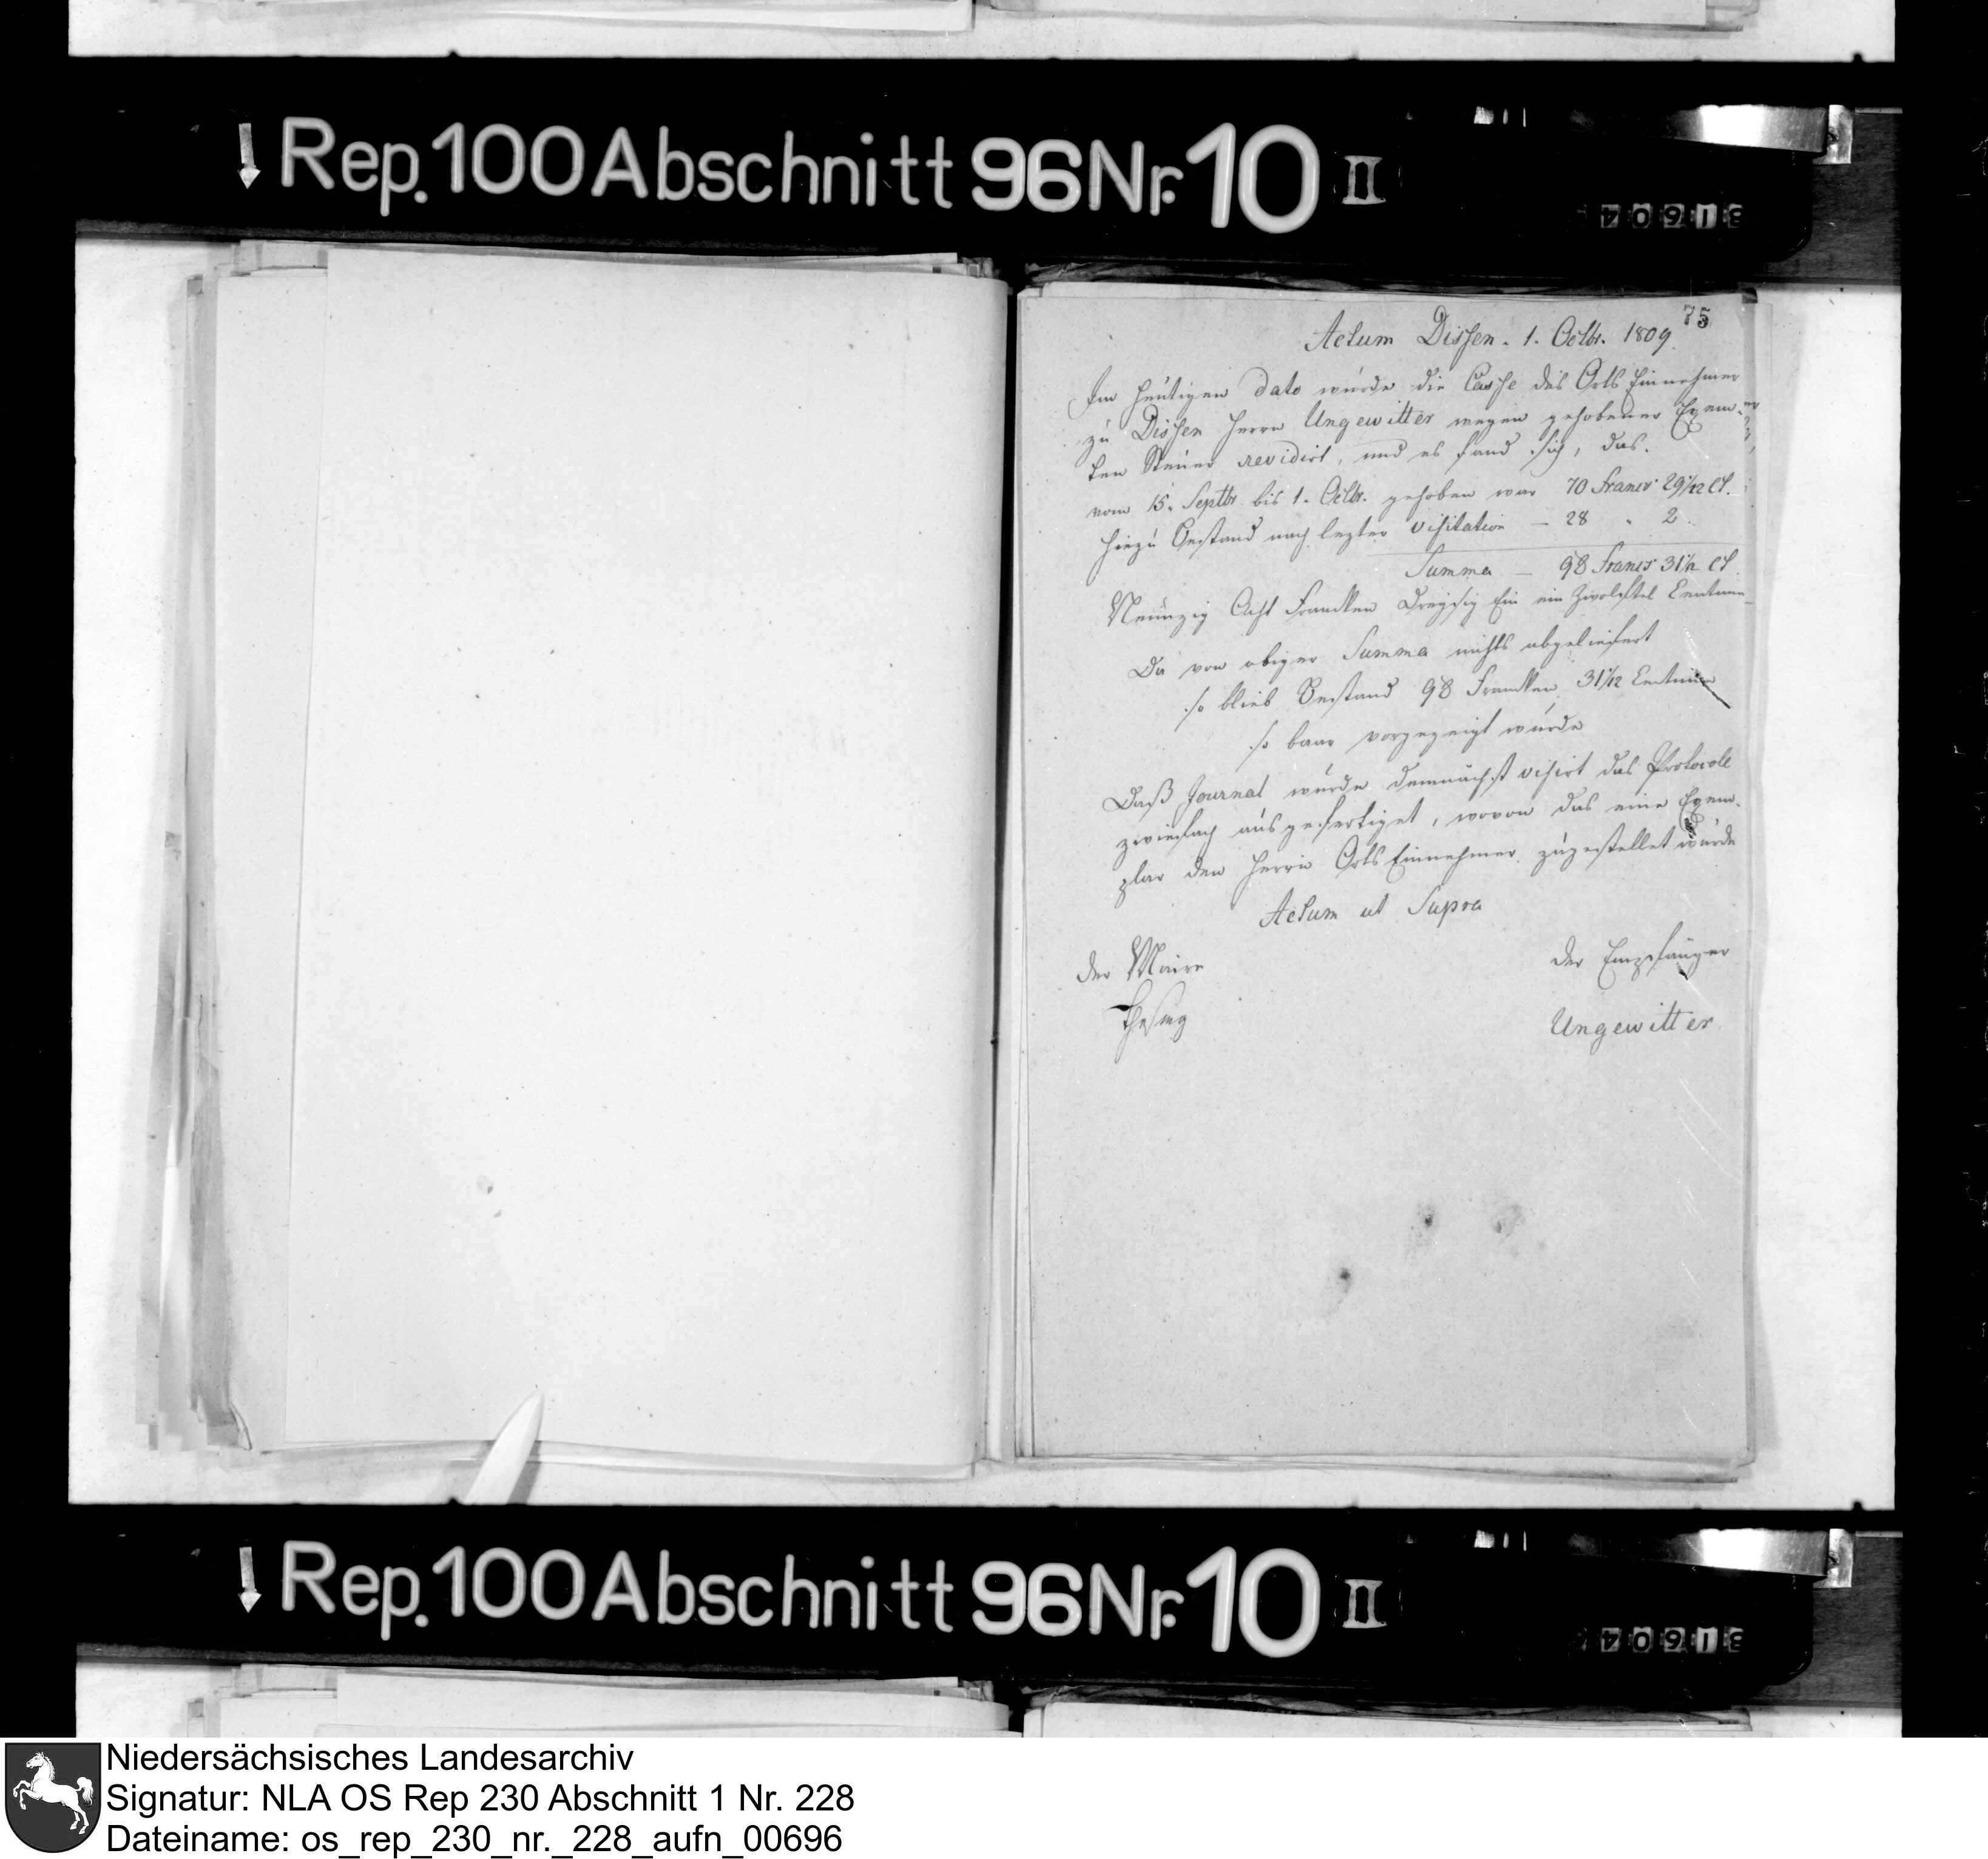 Rep. 100 Abschnitt 96 Nr. 10 II
31604
75
Actum Dissen. 1. Octbr. 1809
Im heutigen dato wurde die Casse des Orts Einnehmer
zu Dissen Herrn Ungewitter wegen gehobener Exem-
ten Steuer revidirt, und es fand sich, das.
vom 15. Septbr bis 1. Octbr. gehoben war 70 Francs 29 1/12 Ct.
hiezu Bestand nach lezter Visitation – 28 " 2.
Summa – 98 Francs 31 1/12 Ct.
Neunzig Acht Francken Dreysig Ein ein Zwolftel Centimen
Da von obiger Summa nichts abgeliefert
so blieb Bestand 98 Francken 31 1/12 Centimen
so baar vorgezeigt wurde
Daß Journal wurde demnächst visirt das Protocoll
zwiefach ausgefertiget, wovon das eine Exem-
plar den Herrn Orts Einnehmer zugestellet wurde
Actum ut Supra
der Maire
der Empfänger
Ungewitter
Rep. 100 Abschnitt 96 Nr. 10 II
31604
Niedersächsisches Landesarchiv
Signatur: NLA OS Rep 230 Abschnitt 1 Nr. 228
Dateiname: os_rep_230_nr._228_aufn_00696